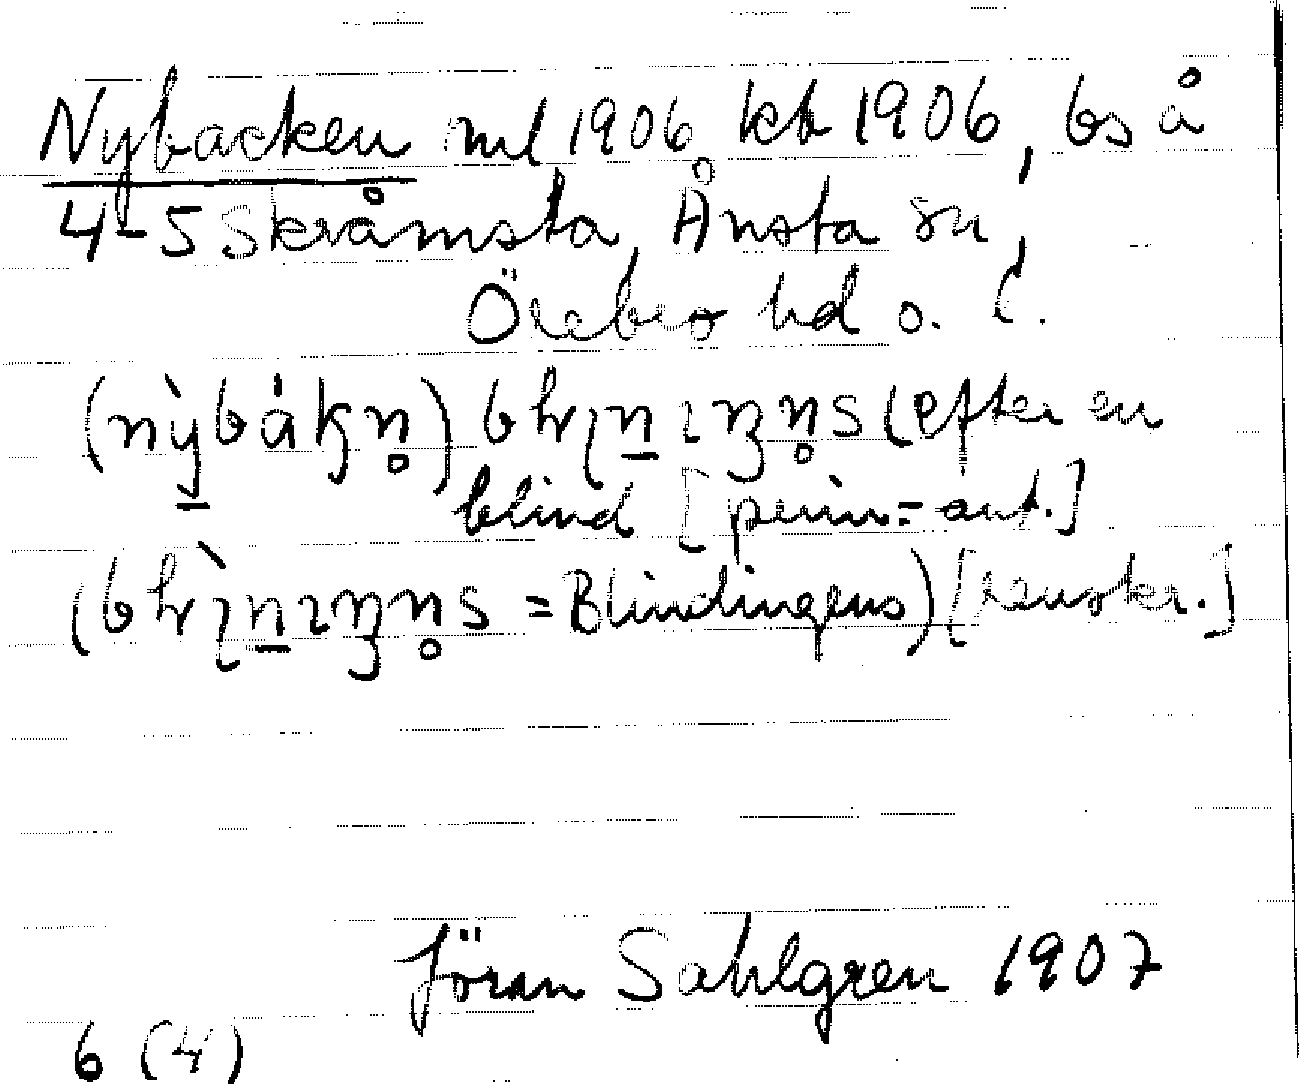 Nybacken ml 1906 kb 1906, bs å
4-5 Skråmsta, Ånsta sn,
Örebro hd o. l.
(efter en
blind [penn.-ant.]
= Blindingens) [renskr.]
Jöran Sahlgren 1907
6 (4)